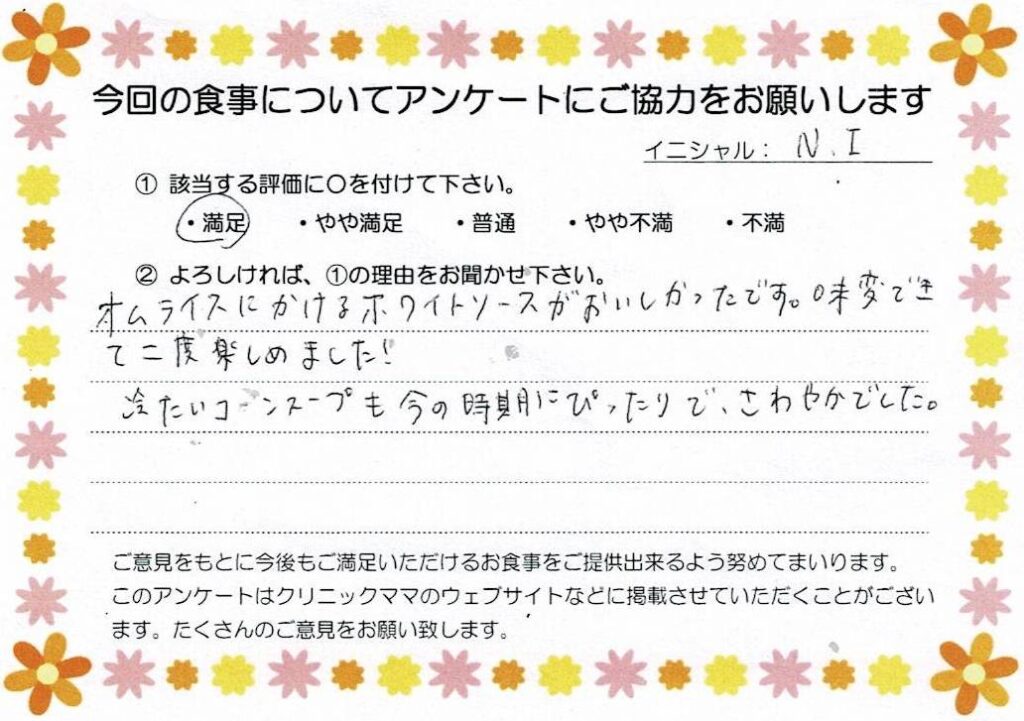 今回の食事についてアンケートにご協力をお願いします
イニシャル： N.I
① 該当する評価に〇を付けて下さい。
・満足 ・やや満足 ・普通 ・やや不満 ・不満
② よろしければ、①の理由をお聞かせ下さい。
オムライスにかけるホワイトソースがおいしかったです。味変でき
て二度楽しめました！
冷たいコーンスープも今の時期にぴったりで、さわやかでした。
ご意見をもとに今後もご満足いただけるお食事をご提供出来るよう努めてまいります。
このアンケートはクリニックママのウェブサイトなどに掲載させていただくことがござい
ます。たくさんのご意見をお願い致します。